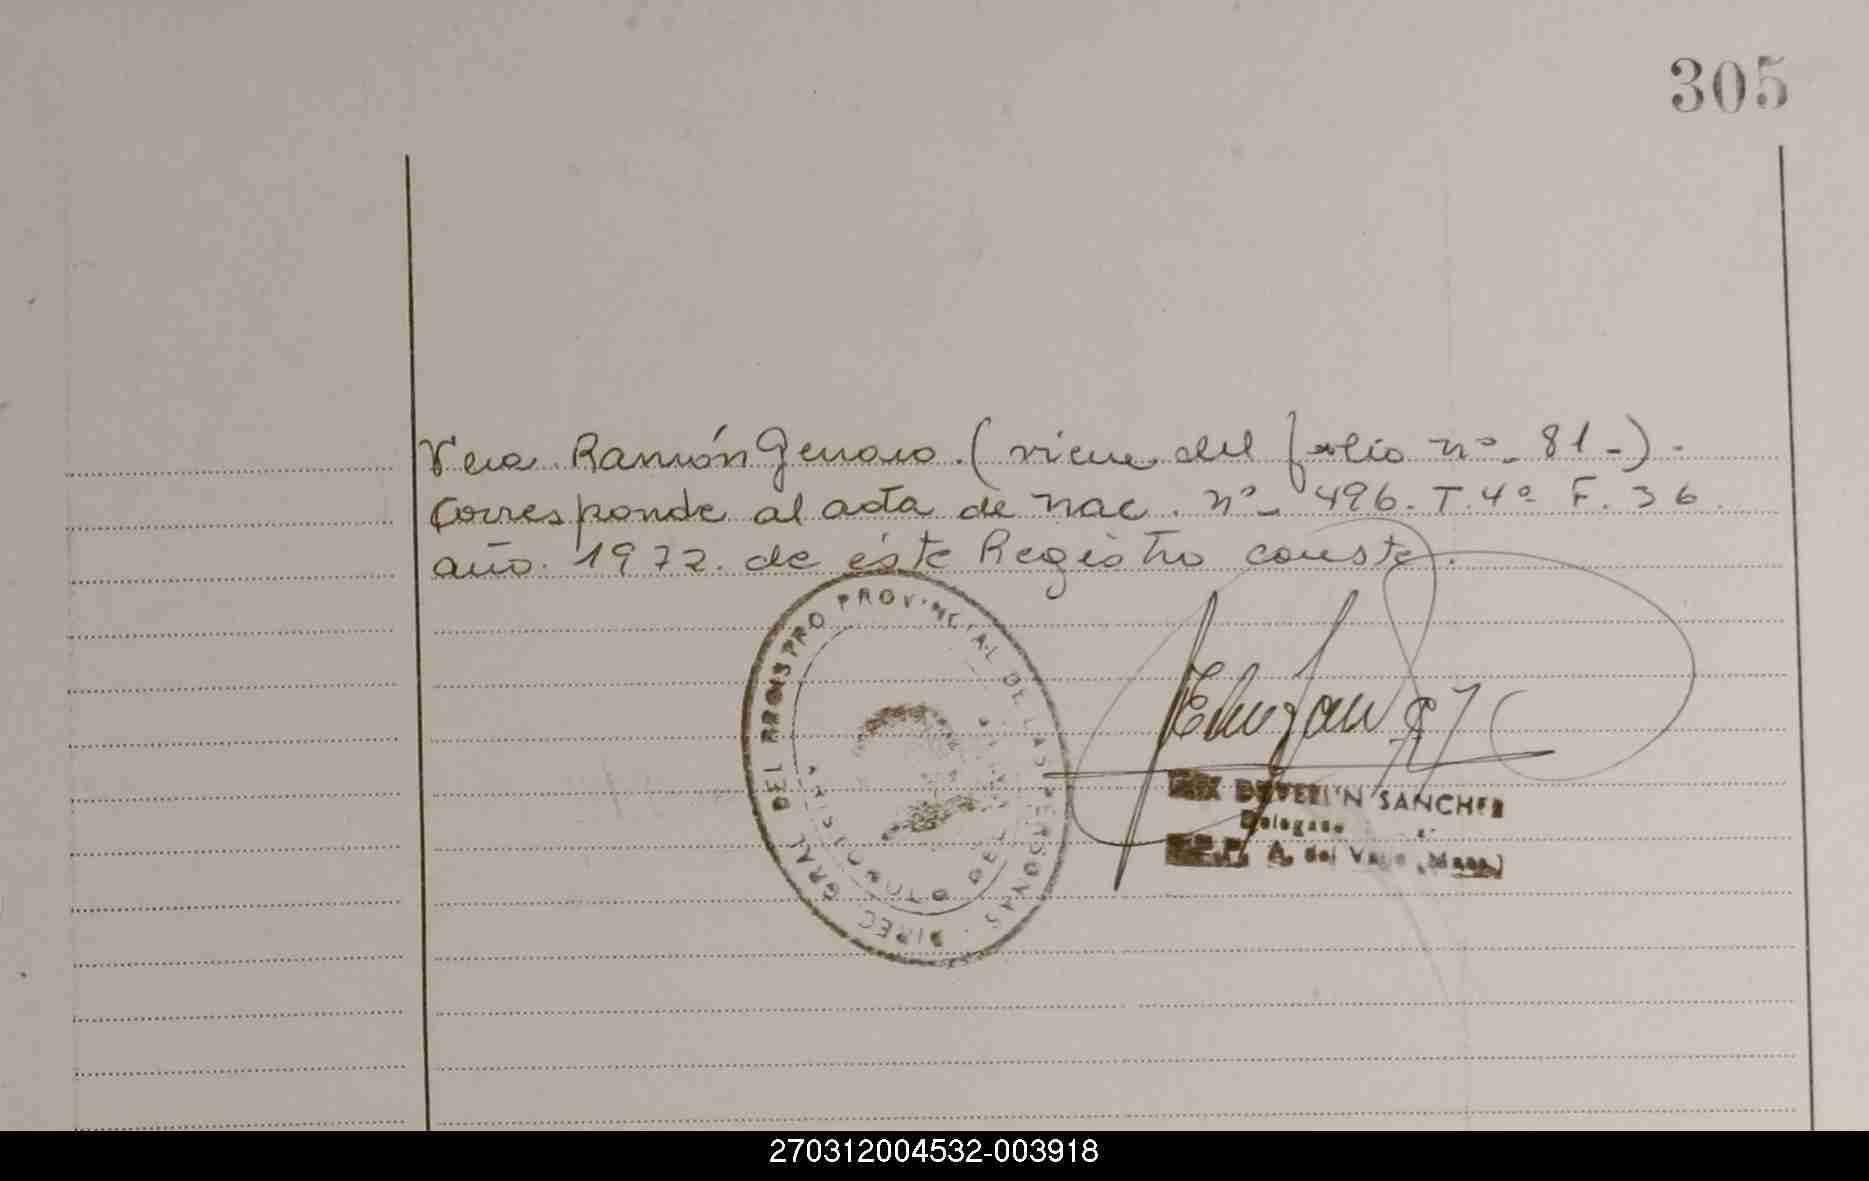 305
Vera Ramón Genaro. (viene del folio nº - 81 -) -
Corresponde al acta de nac. nº - 496. T. 4º F. 36.
año. 1972. de éste Registro conste.
DIREC GRAL DEL REGISTRO PROVINCIAL DE LAS PERSONAS
SANCHEZ
Delegado
A. del Valle
270312004532-003918